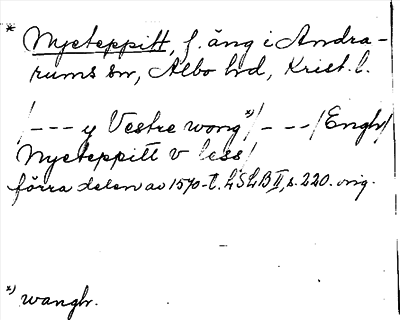 * Nyeteppitt, f. äng i Andra-
rums sn, Albo hd, Krist. l.
/--- y Vestre wong *)/--- /Engh/
Nyeteppitt v less/
förra delen av 1570-t. LSLB II, s. 220. orig.
*) wangh.